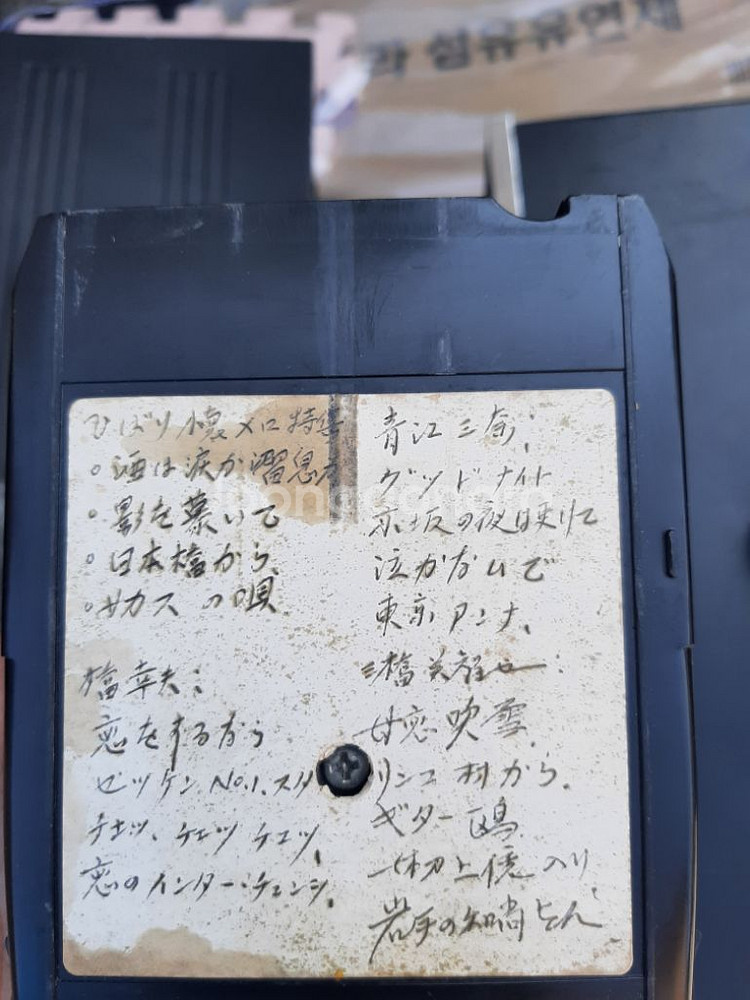 과 섬유유연제
ひばり懐メロ特集
○酒は涙か溜息か
○影を慕いて
○日本橋から
○サカスの唄
橋幸夫:
恋をするなら
ゼッケンNo.1.スタ
チェッ、チェッ チェッ、
恋のインター・チェンジ.
青江三奈;
グッドナイト
の夜
泣かないで
東京アンナ、
三橋美智也:
吹雪.
リンゴ村から.
ギター鴎
上
岩手の